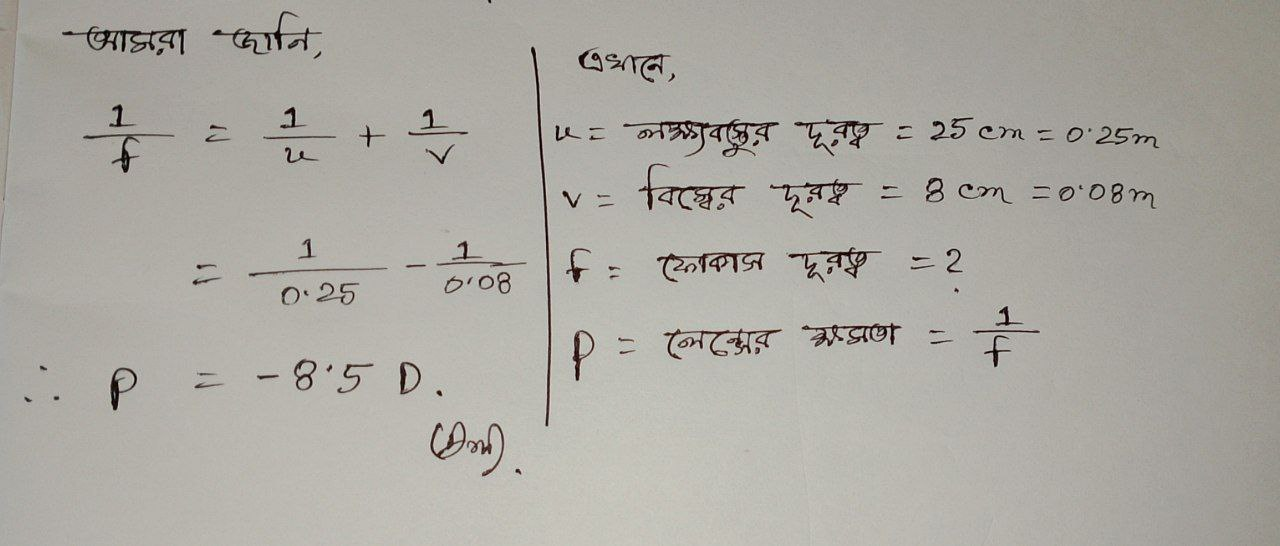 আমরা জানি,
1/f = 1/u + 1/v
= 1/0.25 - 1/0.08
∴ P = -8.5 D.
(Ans).
এখানে,
u = লক্ষ্যবস্তুর দূরত্ব = 25 cm = 0.25m
v = বিম্বের দূরত্ব = 8 cm = 0.08m
f = ফোকাস দূরত্ব = ?
P = লেন্সের ক্ষমতা = 1/f